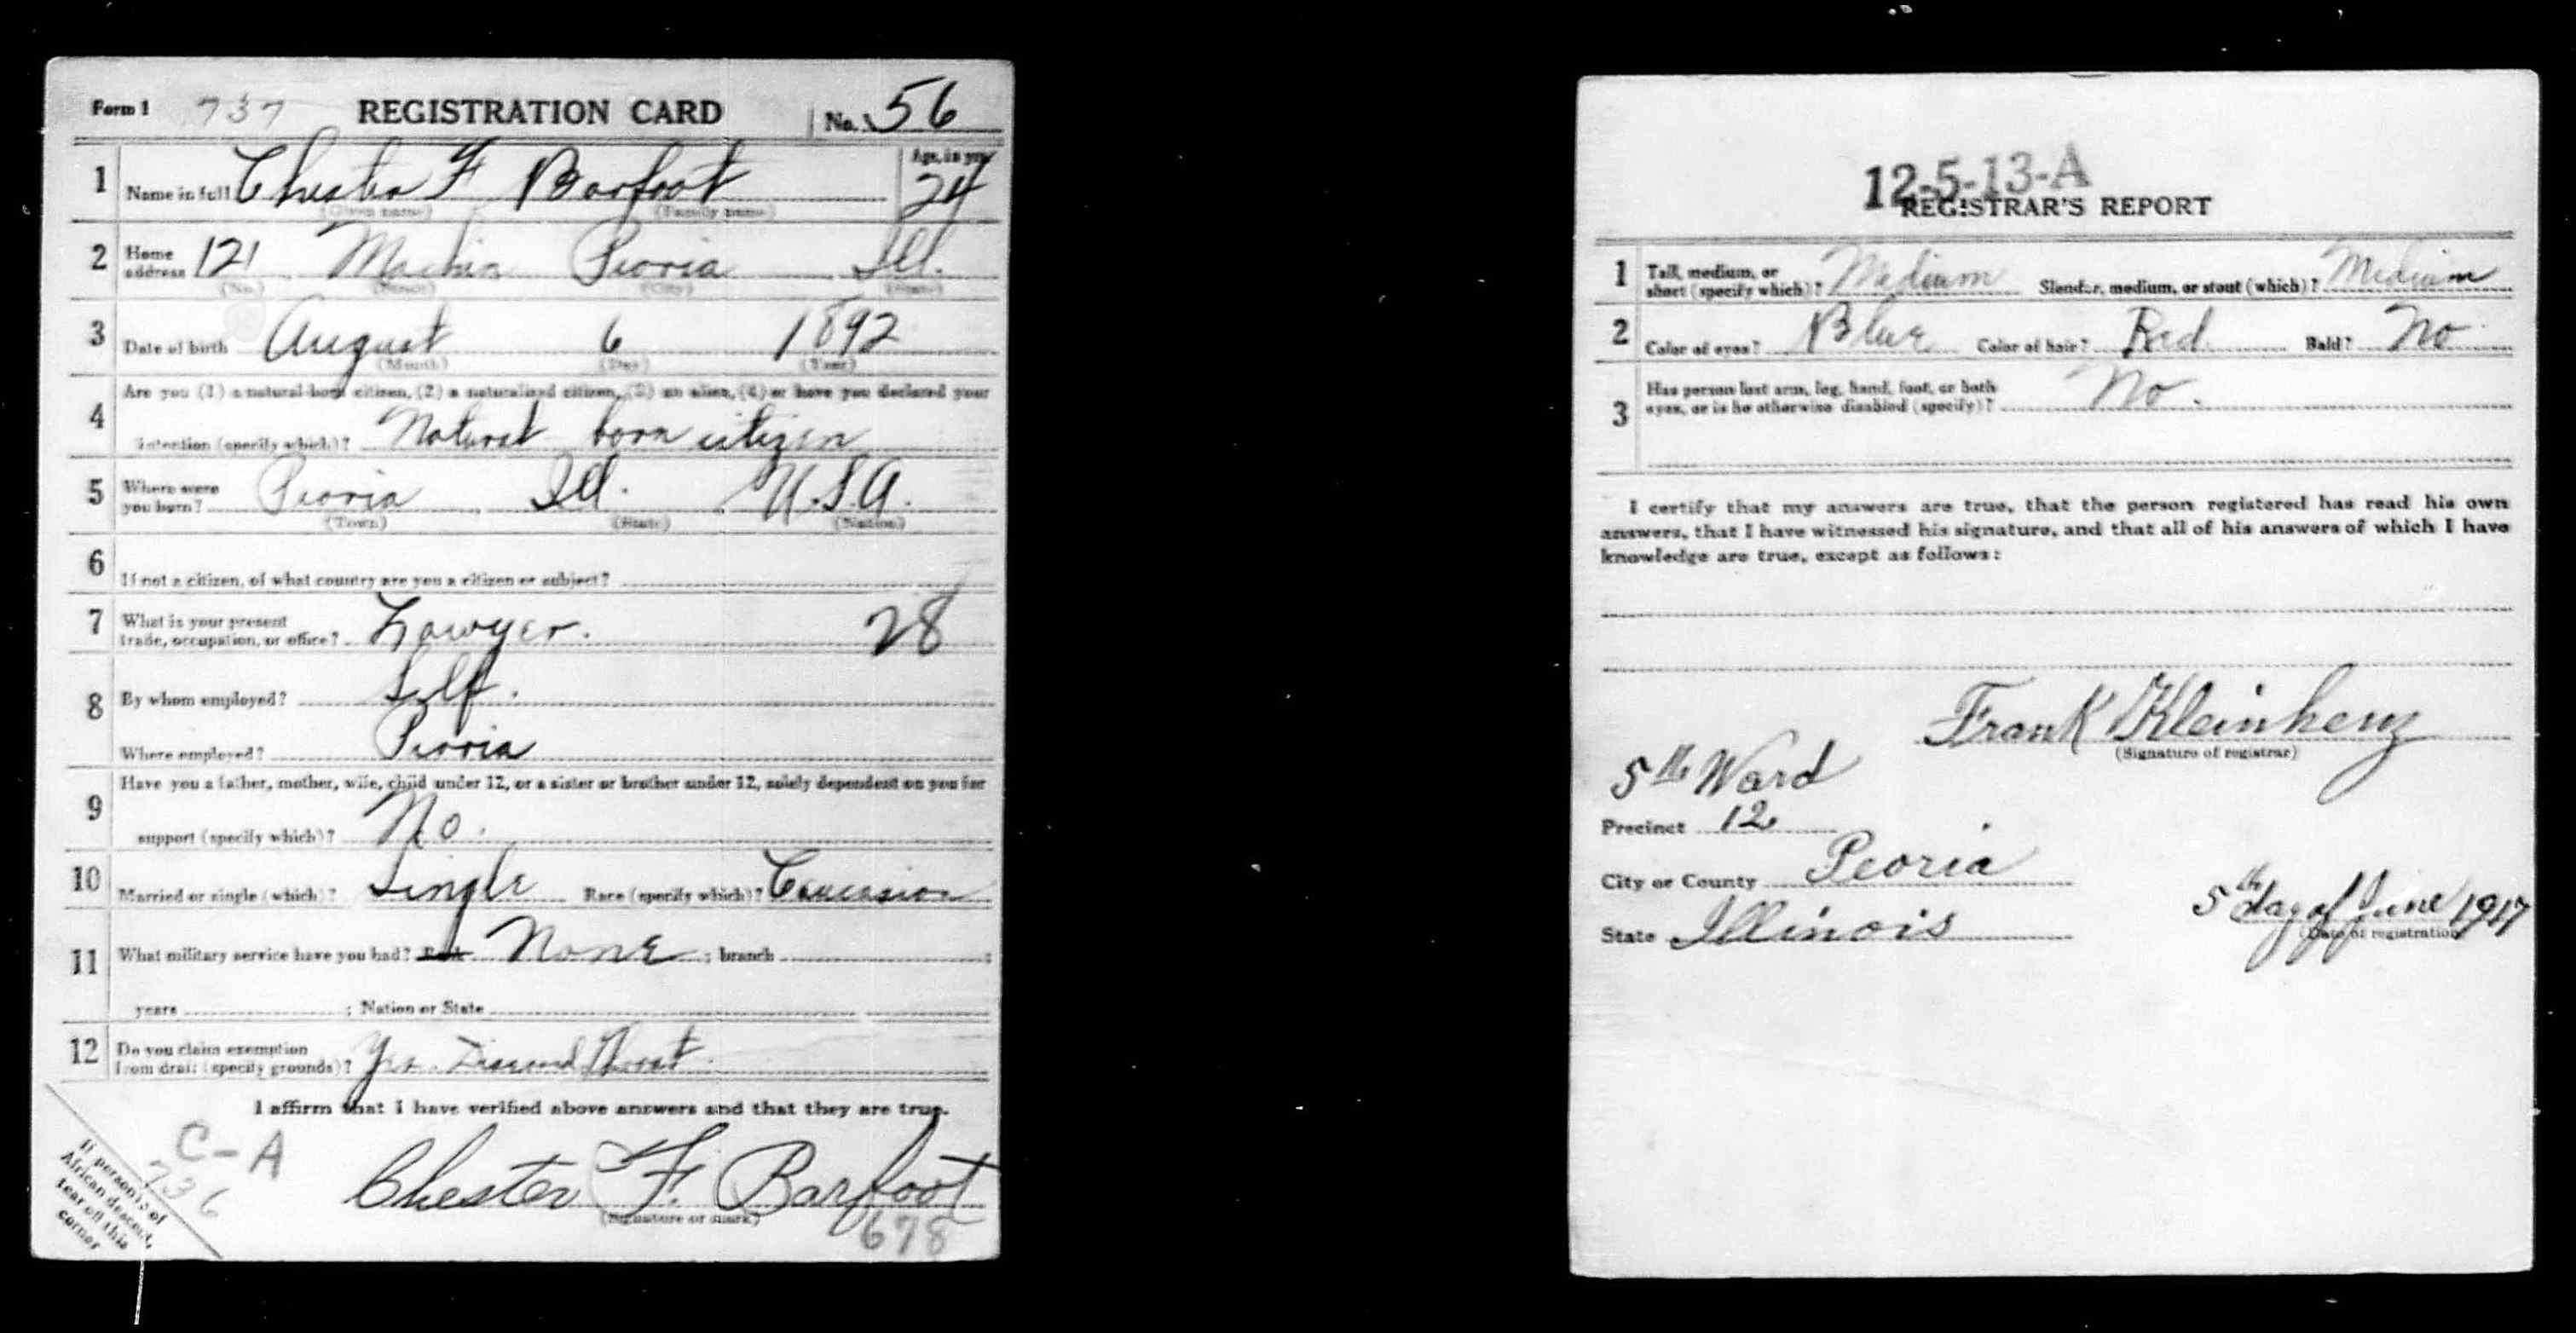 Form 1 737 REGISTRATION CARD No. 56
1 Name in full Chester F Barfoot Age, in yrs 24
(Given name) (Family name)
2 Home address 121 Machin Peoria Ill.
(No.) (Street) (City) (State)
3 Date of birth August 6 1892
(Month) (Day) (Year)
4 Are you (1) a natural-born citizen, (2) a naturalized citizen, (3) an alien, (4) or have you declared your
intention (specify which)? Natural born citizen
5 Where were you born? Peoria Ill. U.S.A.
(Town) (State) (Nation)
6 If not a citizen, of what country are you a citizen or subject?
7 What is your present
trade, occupation, or office? Lawyer. 28
8 By whom employed? Self.
Where employed? Peoria
9 Have you a father, mother, wife, child under 12, or a sister or brother under 12, solely dependent on you for
support (specify which)? No.
10 Married or single (which)? Single Race (specify which)? Caucasion
11 What military service have you had? Rank None ; branch ;
years ; Nation or State
12 Do you claim exemption
from draft (specify grounds)? Yes. Diseased Throat.
I affirm that I have verified above answers and that they are true.
C-A
736
Chester F. Barfoot
(Signature or mark)
678
If person is of
African descent,
tear off this
corner
12-5-13-A
REGISTRAR'S REPORT
1 Tall, medium, or
short (specify which)? Medium Slender, medium, or stout (which)? Medium
2 Color of eyes? Blue Color of hair? Red Bald? No
3 Has person lost arm, leg, hand, foot, or both
eyes, or is he otherwise disabled (specify)? No.
I certify that my answers are true, that the person registered has read his own
answers, that I have witnessed his signature, and that all of his answers of which I have
knowledge are true, except as follows:
Frank Kleinhenz
(Signature of registrar)
5th Ward
Precinct 12
City or County Peoria
State Illinois
5th day of June 1917
(Date of registration)